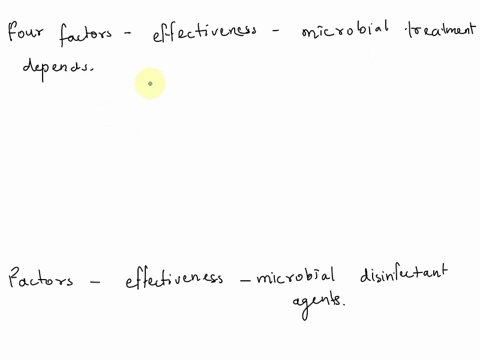 Four factors - effectiveness - microbial treatment
depends.
Factors - effectiveness - microbial disinfectant
agents.